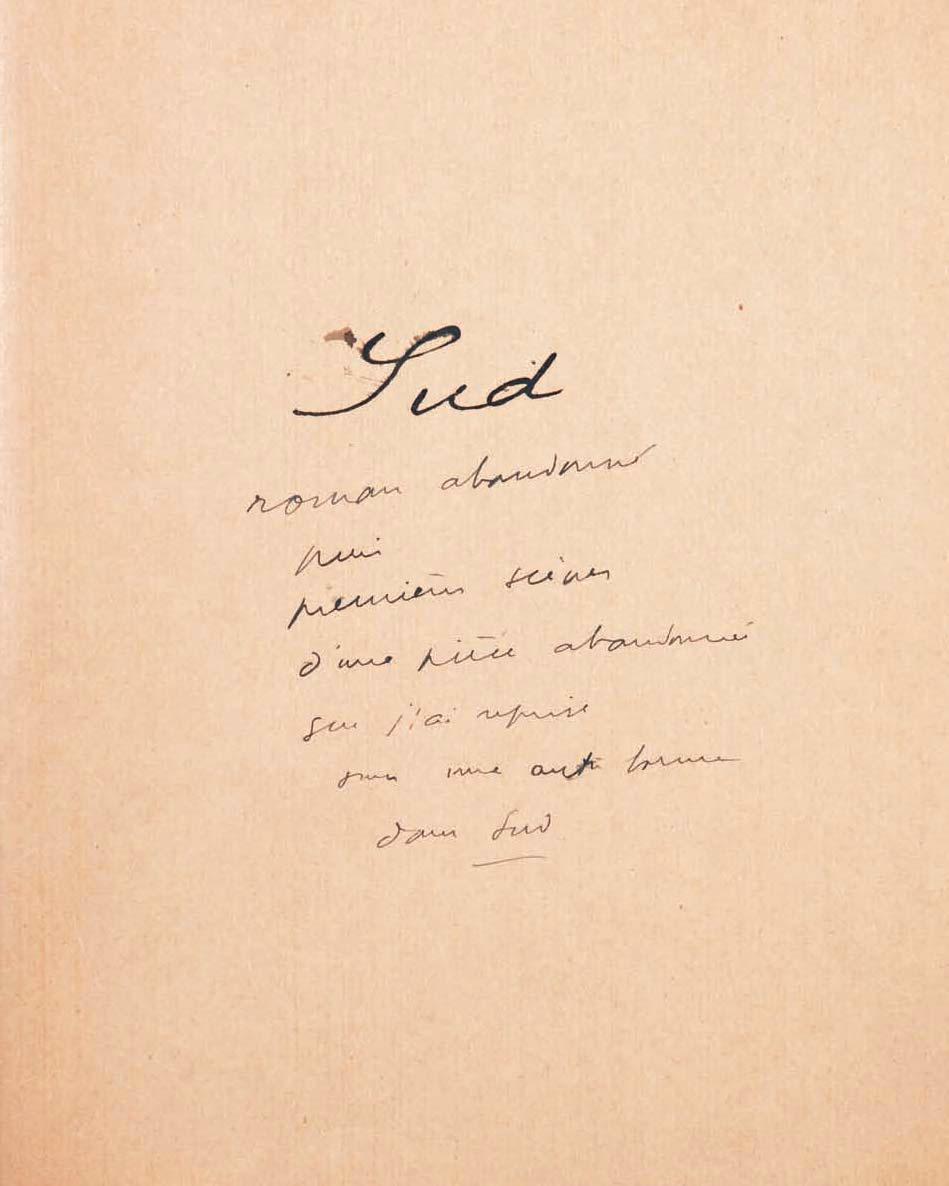 Sud
roman abandonné
puis
premières scènes
d'une pièce abandonnée
que j'ai reprise
sous une autre forme
dans Sud